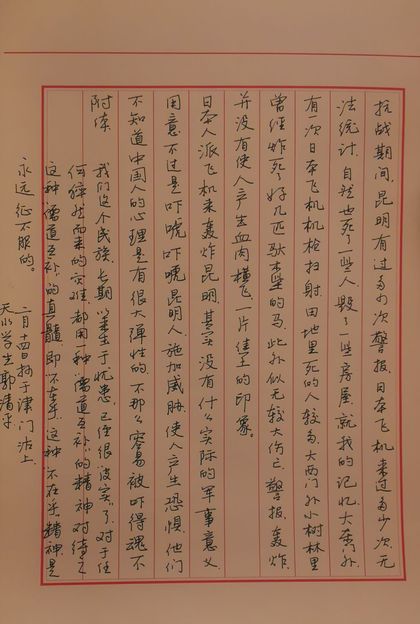 抗战期间，昆明有过多少次警报，日本飞机来过多少次，无
法统计。自然也死了一些人，毁了一些房屋。就我的记忆，大东门外，
有一次日本飞机机枪扫射，田地里死的人较多。大西门外小树林里
曾经炸死了好几匹驮木柴的马。此外似无较大伤亡。警报、轰炸，
并没有使人产生血肉横飞，一片焦土的印象。
日本人派飞机来轰炸昆明，其实没有什么实际的军事意义，
用意不过是吓唬吓唬昆明人，施加威胁，使人产生恐惧。他们
不知道中国人的心理是有很大弹性的，不那么容易被吓得魂不
附体。我们这个民族，长期以来，生于忧患，已经很“皮实”了，对于任
何猝然而来的灾难，都用一种“儒道互补”的精神对待之。
这种“儒道互补”的真髓，即“不在乎”。这种“不在乎”精神，是
永远征不服的。
二月十四日抄于津门沽上
学生郭清平